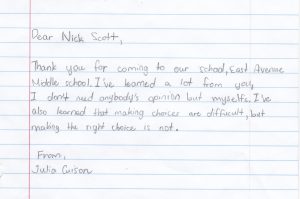 Dear Nick Scott,
Thank you for coming to our school, East Avenue
Middle school. I've learned a lot from you,
I don't need anybody's opinion but myselfs. I've
also learned that making choices are difficult, but
making the right choice is not.
From,
Julia